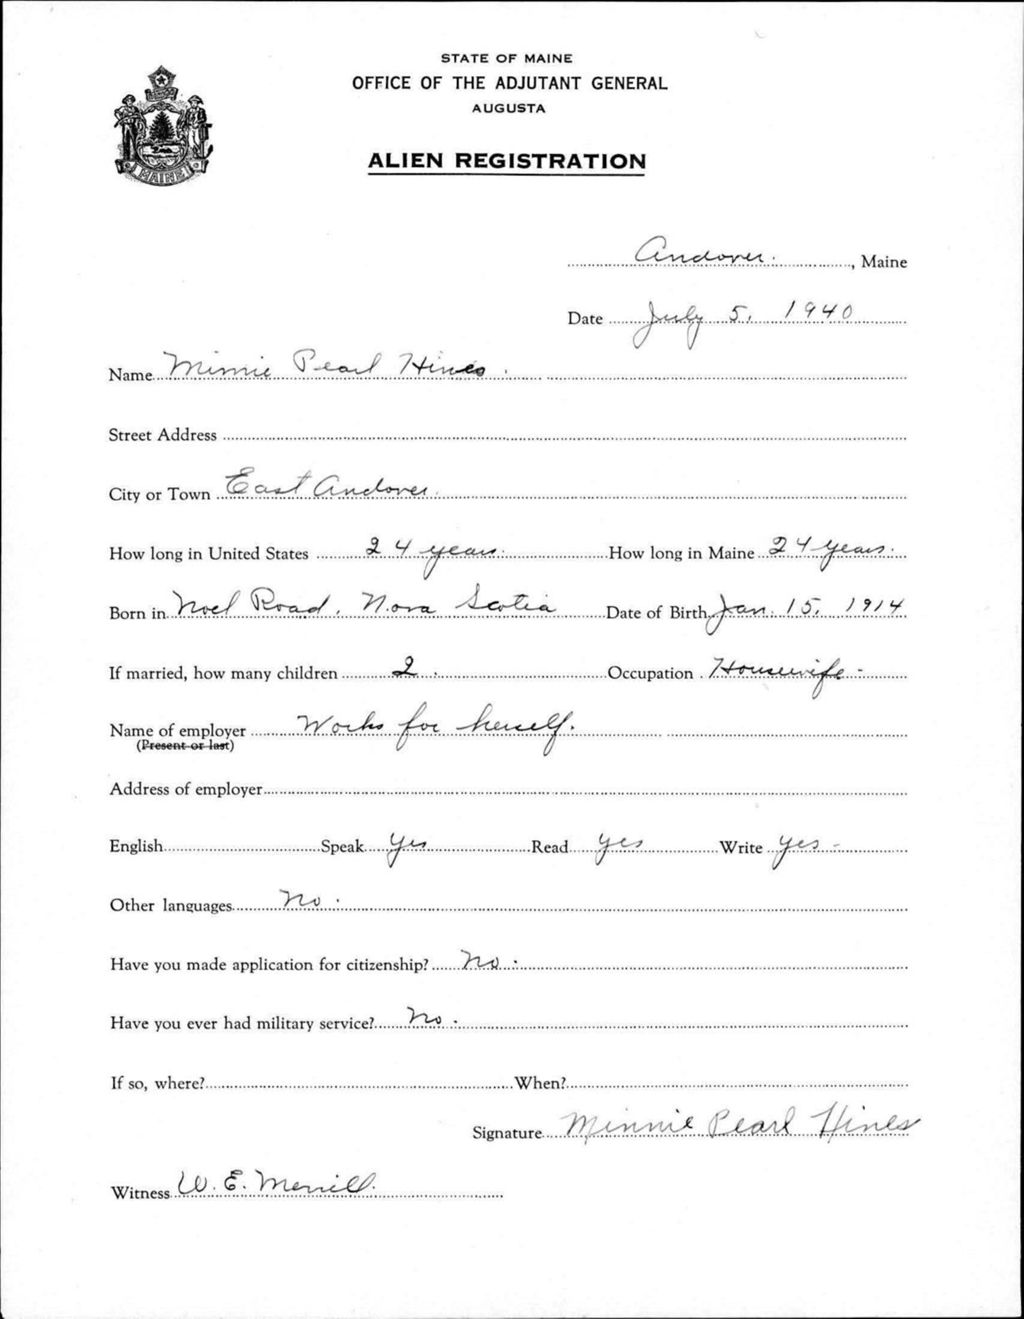 STATE OF MAINE
OFFICE OF THE ADJUTANT GENERAL
AUGUSTA
ALIEN REGISTRATION
MAINE
Andover., Maine
Date July 5, 1940
Name Minnie Pearl Hines.
Street Address
City or Town East Andover
How long in United States 24 years. How long in Maine 24 years.
Born in Noel Road, Nova Scotia Date of Birth Jan. 15, 1914
If married, how many children 2. Occupation Housewife -
Name of employer Works for herself.
(Present or last)
Address of employer
English Speak Yes Read yes Write yes -
Other languages No.
Have you made application for citizenship? No.
Have you ever had military service? No.
If so, where? When?
Signature Minnie Pearl Hines
Witness W. E. Merrill.